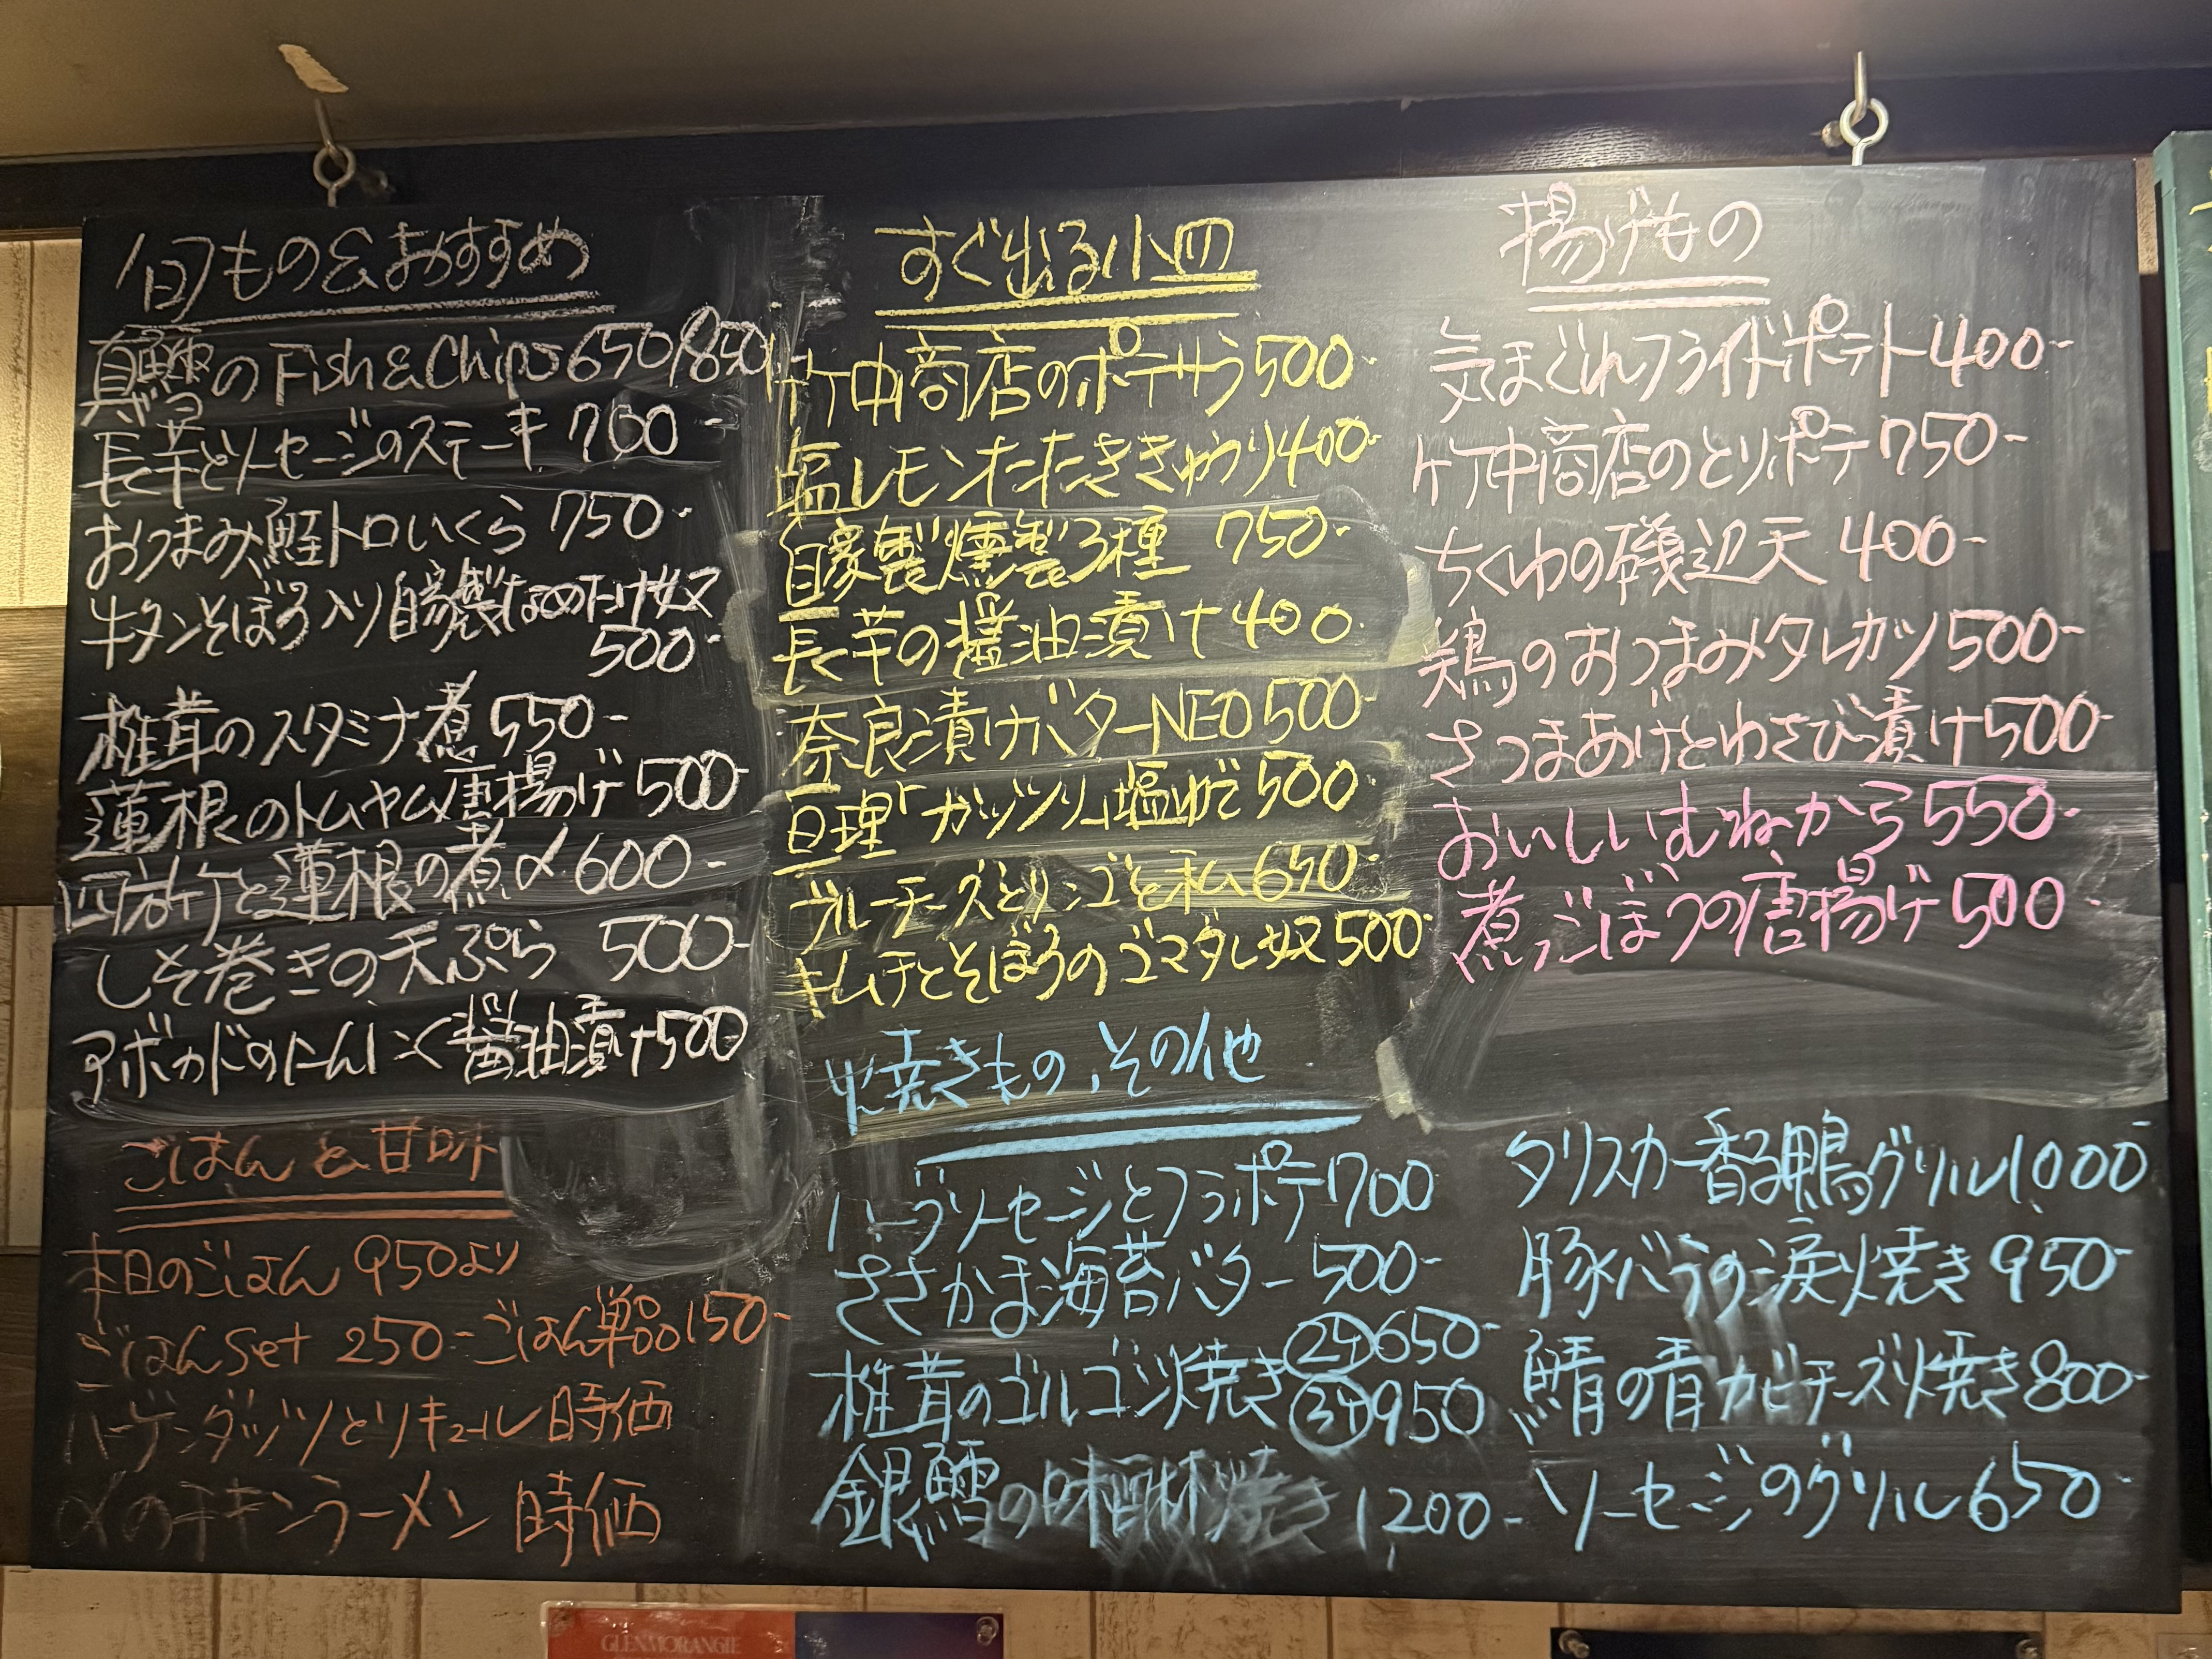 旬もの&おすすめ
真鱈の Fish & Chips 650/850
長芋とソーセージのステーキ 700-
おつまみ鮭トロいくら 750-
牛タンそぼろ入り自家製なめたけ奴
500-
椎茸のスタミナ煮 550-
蓮根のトムヤム唐揚げ 500-
四方竹と蓮根の煮〆 600-
しそ巻きの天ぷら 500-
アボカドのにんにく醤油漬け 500
ごはんと甘味
本日のごはん 950より
ごはんset 250- ごはん単品 150-
ハーゲンダッツとリキュール 時価
〆のチキンラーメン 時価
すぐ出る小皿
竹中商店のポテサラ 500-
塩レモンたたききゅうり 400-
自家製燻製3種 750-
長芋の醤油漬け 400-
奈良漬けバターNEO 500-
亘理「ガッツリ」塩ゆで 500-
ブルーチーズとリンゴと私 650-
キムチとそぼろのゴマダレ奴 500-
揚げもの
気まぐれフライドポテト 400-
竹中商店のとりポテ 750-
ちくわの磯辺天 400-
鶏のおつまみタレカツ 500-
さつまあげとわさび漬け 500-
おいしいむねから 550-
煮ごぼうの唐揚げ 500-
焼きもの、その他
ハーブソーセージとフラポテ 700
ささかま海苔バター 500-
椎茸のゴルゴンゾーラ焼き 2ケ 650-
3ケ 950
銀鱈の味醂焼き 1200-
タリスカー香る鴨グリル 1000-
豚バラの涙焼き 950-
鯖の青カビチーズ焼き 800-
ソーセージのグリル 650-
GLENMORANGIE